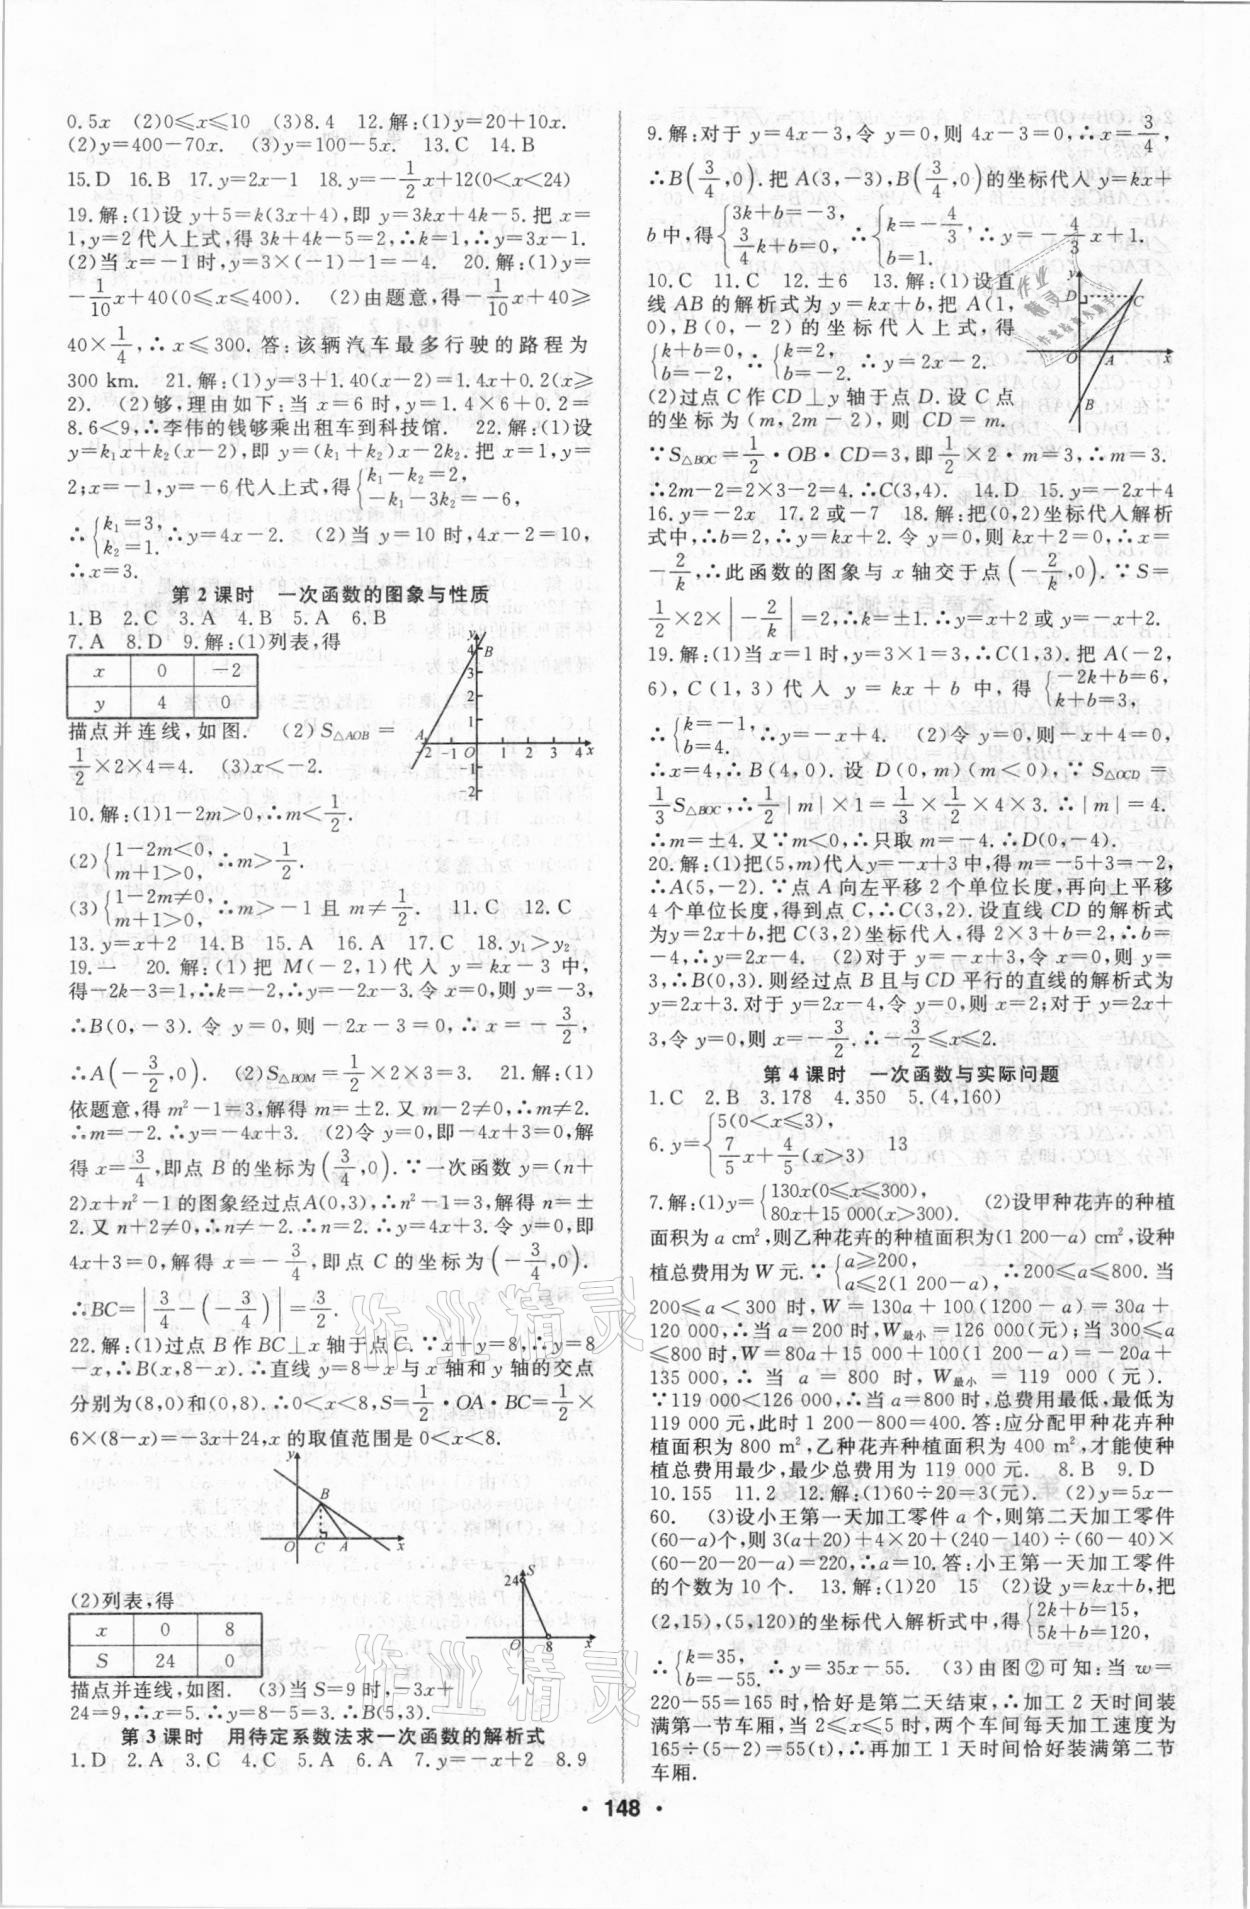 0.5x (2)0⩽x⩽10 (3)8.4 12.解:(1)y=20+10x.
(2)y=400-70x. (3)y=100-5x. 13.C 14.B
15.D 16.B 17.y=2x-1 18.y=-1/2x+12(0<x<24)
19.解:(1)设 y+5=k(3x+4),即 y=3kx+4k-5.把 x=
1,y=2代入上式,得3k+4k-5=2,∴k=1,∴y=3x-1.
(2)当 x=-1 时,y=3×(-1)-1=-4. 20.解:(1)y=
-1/10x+40(0⩽x⩽400). (2)由题意,得-1/10x+40⩾
40×1/4,∴x⩽300.答:该辆汽车最多行驶的路程为
300 km. 21.解:(1)y=3+1.40(x-2)=1.4x+0.2(x⩾
2). (2)够,理由如下:当 x=6 时,y=1.4×6+0.2=
8.6<9,∴李伟的钱够乘出租车到科技馆. 22.解:(1)设
y=k₁x+k₂(x-2),即 y=(k₁+k₂)x-2k₂.把 x=1,y=
2;x=-1,y=-6代入上式,得{k₁-k₂=2, -k₁-3k₂=-6,
∴{k₁=3, k₂=1. ∴y=4x-2. (2)当 y=10 时,4x-2=10,
∴x=3.
第2课时 一次函数的图象与性质
1.B 2.C 3.A 4.B 5.A 6.B
7.A 8.D 9.解:(1)列表,得
x 0 -2
y 4 0
y 4 B 3 2 1 A -2 -1 O 1 2 3 4 x -1 -2
描点并连线,如图. (2)S△AOB=
1/2×2×4=4. (3)x<-2.
10.解:(1)1-2m>0,∴m<1/2.
(2){1-2m<0, m+1>0, ∴m>1/2.
(3){1-2m≠0, m+1>0, ∴m>-1 且 m≠1/2. 11.C 12.C
13.y=x+2 14.B 15.A 16.A 17.C 18.y₁>y₂
19.一 20.解:(1)把 M(-2,1)代入 y=kx-3 中,
得-2k-3=1,∴k=-2,∴y=-2x-3.令 x=0,则 y=-3,
∴B(0,-3).令 y=0,则-2x-3=0,∴x=-3/2,
∴A(-3/2,0). (2)S△BOM=1/2×2×3=3. 21.解:(1)
依题意,得 m²-1=3,解得 m=±2.又 m-2≠0,∴m≠2.
∴m=-2.∴y=-4x+3. (2)令 y=0,即-4x+3=0,解
得 x=3/4,即点 B 的坐标为(3/4,0).∵一次函数 y=(n+
2)x+n²-1 的图象经过点A(0,3),∴n²-1=3,解得 n=±
2.又 n+2≠0,∴n≠-2.∴n=2.∴y=4x+3.令 y=0,即
4x+3=0,解得 x=-3/4,即点 C 的坐标为(-3/4,0).
∴BC=|3/4-(-3/4)|=3/2.
22.解:(1)过点 B 作 BC⊥x 轴于点 C.∵x+y=8,∴y=8
-x,∴B(x,8-x).∴直线 y=8-x 与 x 轴和 y 轴的交点
分别为(8,0)和(0,8).∴0<x<8,S=1/2·OA·BC=1/2×
6×(8-x)=-3x+24,x 的取值范围是 0<x<8.
y B O C A x
(2)列表,得
x 0 8
S 24 0
S 24 O 8 x
描点并连线,如图. (3)当 S=9 时,-3x+
24=9,∴x=5.∴B(5,3).
第3课时 用待定系数法求一次函数的解析式
1.D 2.A 3.C 4.C 5.A 6.A 7.y=-x+2 8.9
9.解:对于 y=4x-3,令 y=0,则 4x-3=0,∴x=3/4,
∴B(3/4,0).把 A(3,-3),B(3/4,0)的坐标代入 y=kx+
b中,得{3k+b=-3, 3/4k+b=0, ∴{k=-4/3, b=1. ∴y=-4/3x+1.
10.C 11.C 12.±6 13.解:(1)设直
线 AB 的解析式为 y=kx+b,把 A(1,
0),B(0,-2)的坐标代入上式,得
{k+b=0, b=-2, ∴{k=2, b=-2. ∴y=2x-2.
(2)过点 C 作 CD⊥y 轴于点 D.设 C 点
的坐标为(m,2m-2),则 CD=m.
y D C O A x B
∵S△BOC=1/2·OB·CD=3,即1/2×2·m=3,∴m=3.
∴2m-2=2×3-2=4.∴C(3,4). 14.D 15.y=-2x+4
16.y=-2x 17.2或-7 18.解:把(0,2)坐标代入解析
式中,∴b=2,∴y=kx+2.令 y=0,则 kx+2=0,∴x=
-2/k,∴此函数的图象与 x 轴交于点(-2/k,0).∵S=
1/2×2×|-2/k|=2,∴k=±1.∴y=x+2或 y=-x+2.
19.解:(1)当 x=1 时,y=3×1=3,∴C(1,3).把 A(-2,
6),C(1,3)代入 y=kx+b 中,得{-2k+b=6, k+b=3,
∴{k=-1, b=4. ∴y=-x+4. (2)令 y=0,则-x+4=0,
∴x=4,∴B(4,0).设 D(0,m)(m<0),∵S△OCD=
1/3S△BOC,∴1/2|m|×1=1/3×1/2×4×3.∴|m|=4.
∴m=±4.又∵m<0,∴只取 m=-4.∴D(0,-4).
20.解:(1)把(5,m)代入 y=-x+3 中,得 m=-5+3=-2,
∴A(5,-2).∵点 A 向左平移 2 个单位长度,再向上平移
4个单位长度,得到点 C,∴C(3,2).设直线 CD 的解析式
为y=2x+b,把 C(3,2)坐标代入,得 2×3+b=2,∴b=
-4,∴y=2x-4. (2)对于 y=-x+3,令 x=0,则 y=
3,∴B(0,3).则经过点 B 且与 CD 平行的直线的解析式为
y=2x+3.对于 y=2x-4,令 y=0,则 x=2;对于 y=2x+
3,令 y=0,则 x=-3/2.∴-3/2⩽x⩽2.
第4课时 一次函数与实际问题
1.C 2.B 3.178 4.350 5.(4,160)
6.y={5(0<x⩽3), 7/5x+4/5(x>3) 13
7.解:(1)y={130x(0⩽x⩽300), 80x+15 000(x>300). (2)设甲种花卉的种植
面积为 a cm²,则乙种花卉的种植面积为(1 200-a) cm²,设种
植总费用为 W 元.∵{a⩾200, a⩽2(1 200-a), ∴200⩽a⩽800.当
200⩽a<300 时,W=130a+100(1200-a)=30a+
120 000,∴当 a=200 时,W最小=126 000(元);当 300⩽a
⩽800 时,W=80a+15 000+100(1 200-a)=-20a+
135 000,∴当 a=800 时,W最小=119 000(元).
∵119 000<126 000,∴当 a=800 时,总费用最低,最低为
119 000 元,此时 1 200-800=400.答:应分配甲种花卉种
植面积为 800 m²,乙种花卉种植面积为 400 m²,才能使种
植总费用最少,最少总费用为 119 000 元. 8.B 9.D
10.155 11.2 12.解:(1)60÷20=3(元). (2)y=6x-
60. (3)设小王第一天加工零件 a 个,则第二天加工零件
(60-a)个,则 3(a+20)+4×20+(240-140)÷(60-40)×
(60-20-20-a)=220,∴a=10.答:小王第一天加工零件
的个数为 10 个. 13.解:(1)20 15 (2)设 y=kx+b,把
(2,15),(5,120)的坐标代入解析式中,得{2k+b=15, 5k+b=120,
∴{k=35, b=-55. ∴y=35x-55. (3)由图②可知:当 w=
220-55=165 时,恰好是第二天结束,∴加工 2 天时间装
满第一节车厢,当 2⩽x⩽5 时,两个车间每天加工速度为
165÷(5-2)=55(t),∴再加工 1 天时间恰好装满第二节
车厢.
· 148 ·
作业精灵
作业精灵
作业精灵